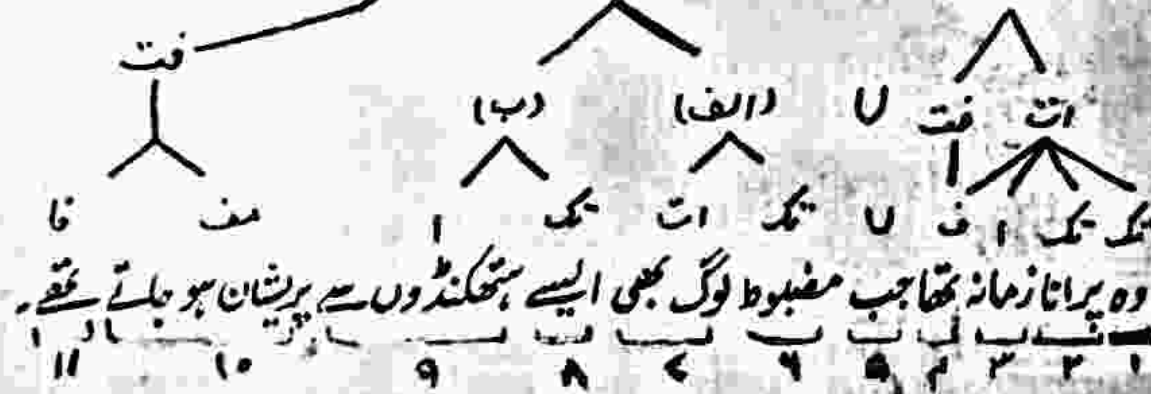 ات فت U (الف) (ب) فت
تک تک ا ف U تک ات تک ا مف فا
وہ پرانا زمانہ تھا جب مضبوط لوگ بھی ایسے ہتھکنڈوں سے پریشان ہو جاتے تھے۔
۱ ۲ ۳ ۴ ۵ ۶ ۷ ۸ ۹ ۱۰ ۱۱